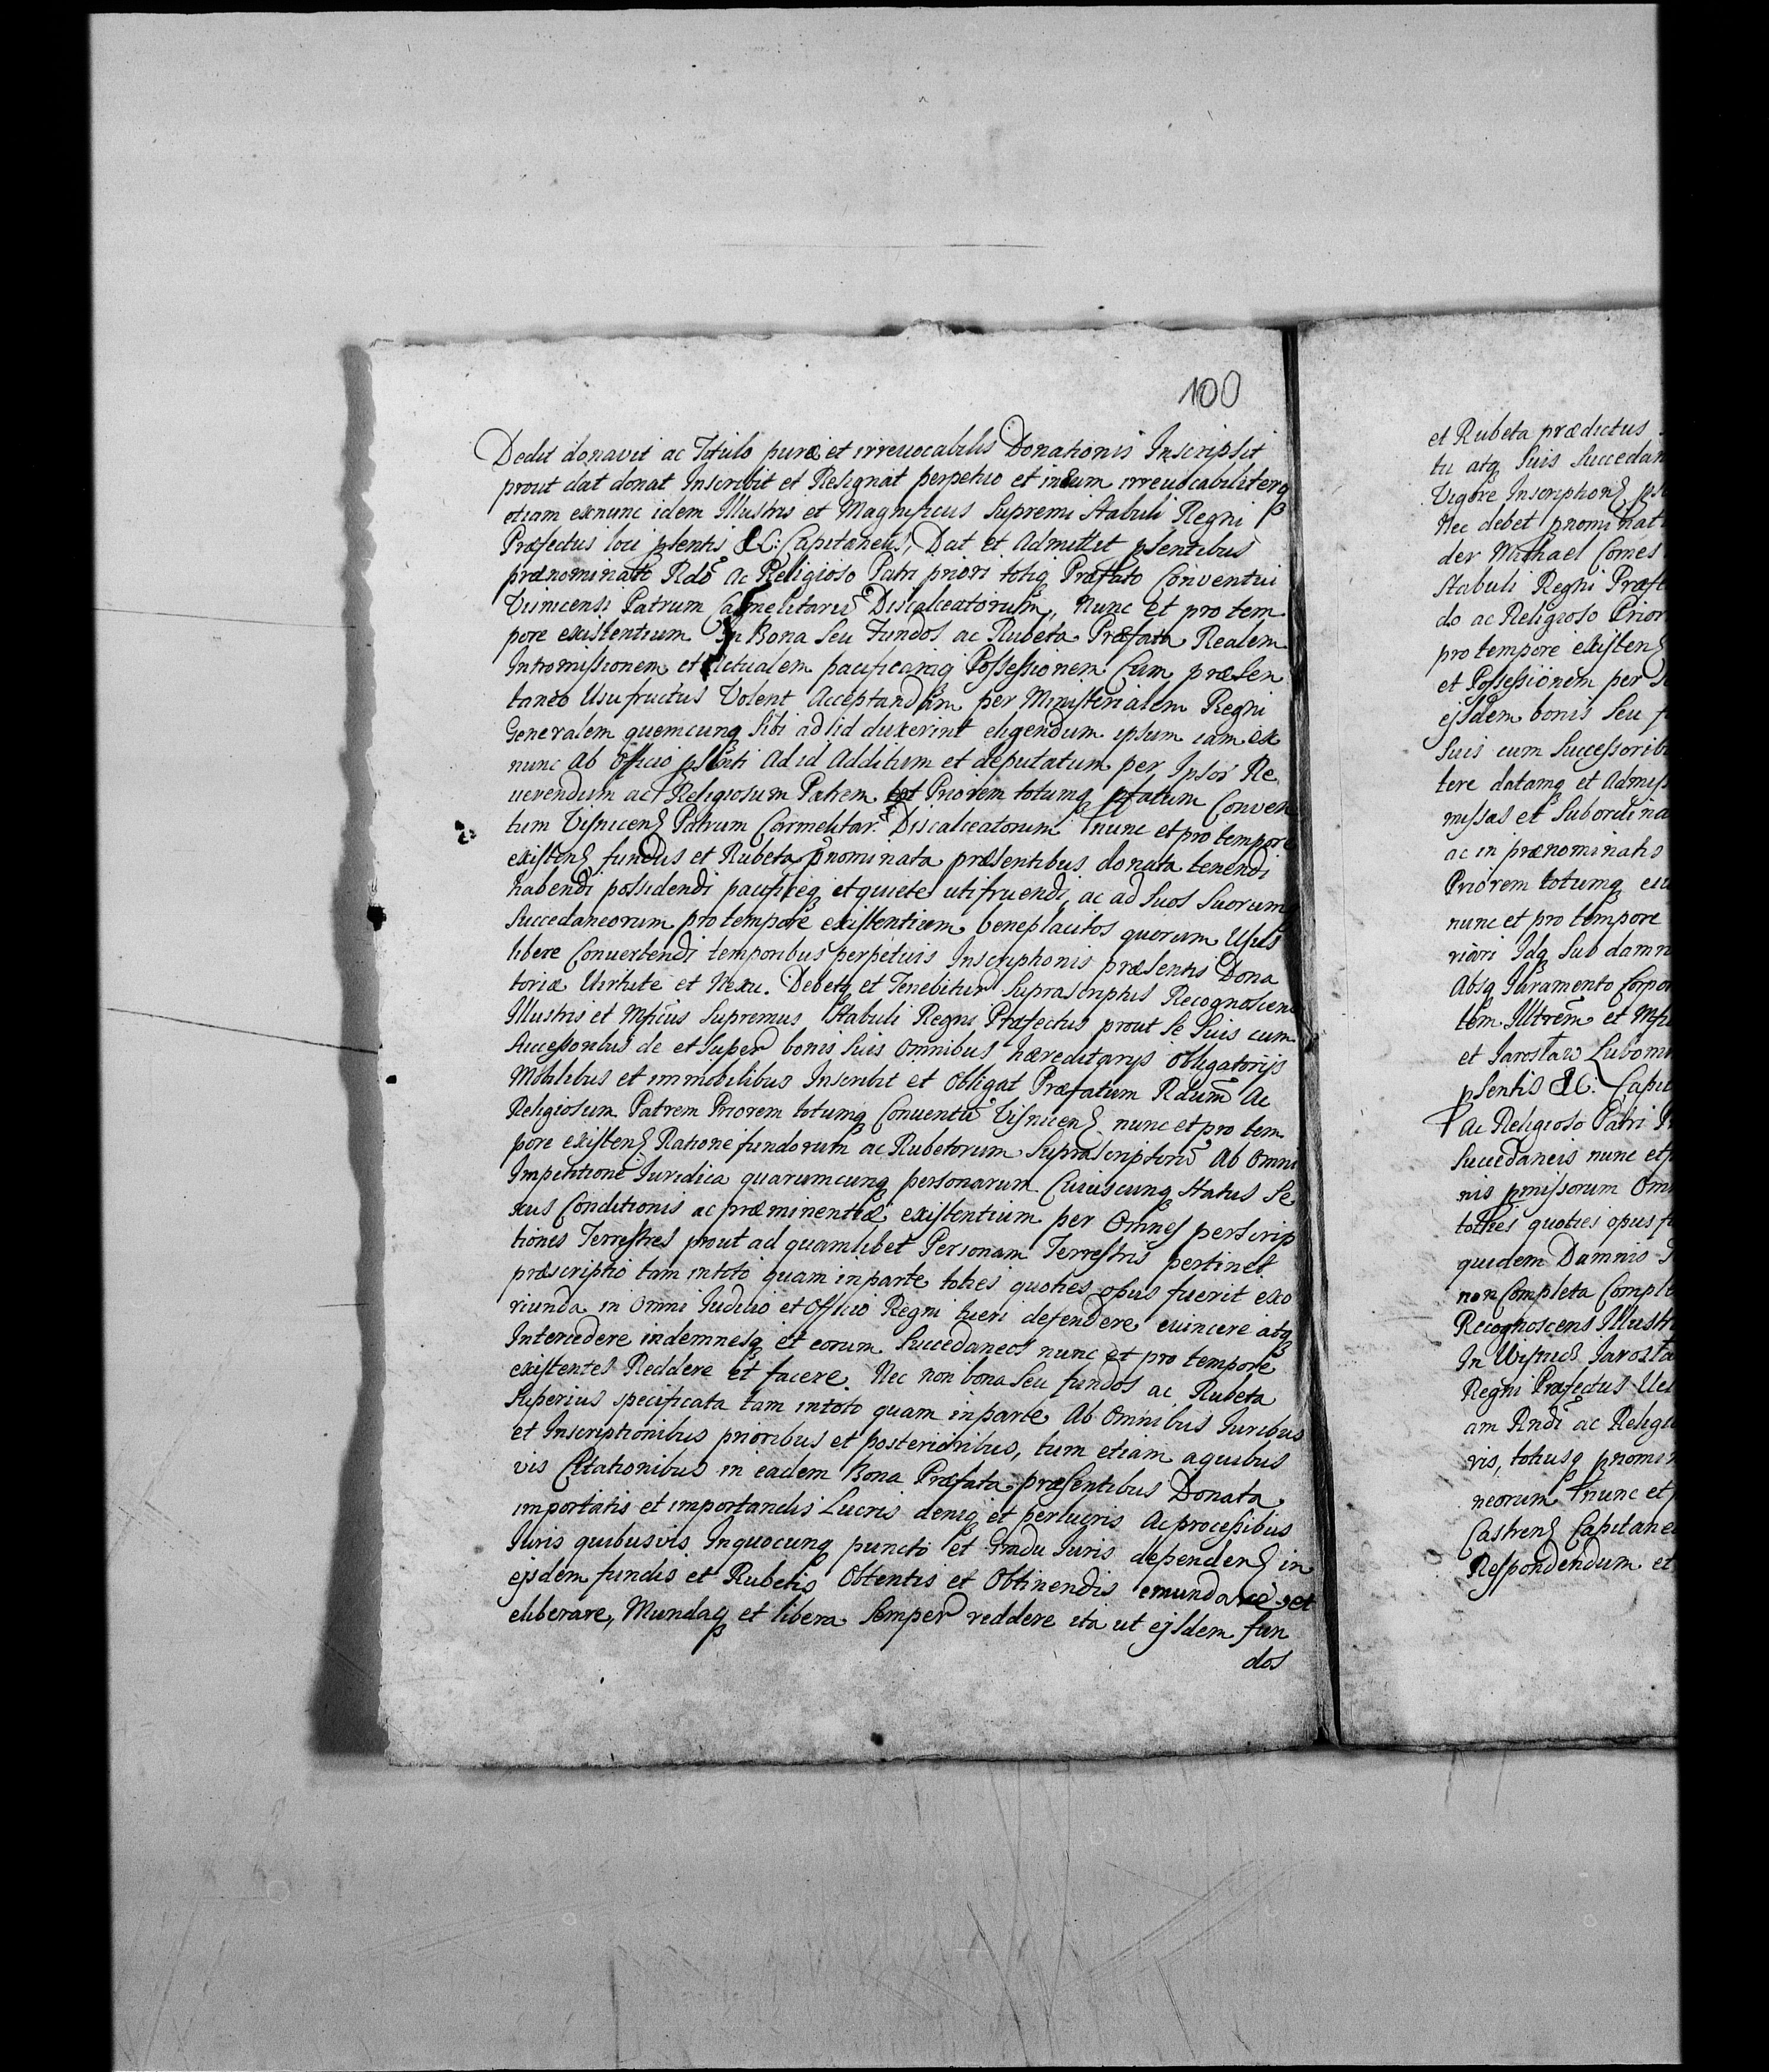 100
Dedit donavit ac Titulo puræ et irrevocabilis Donationis Inscripsit
prout dat donat Inscribit et Resignat perpetuo et in ævum irrevocabiliterq
etiam exnunc idem Illustris et Magnificus Supremi Stabuli Regni
Præfectus loci pſentis &C: Capitaneus, Dat et Admittit pſentibus
prænominato Rdo ac Religioso Patri priori totiq Præfato Conventui
Visnicensi Patrum Carmelitarū Discalceatorum, Nunc et pro tem
pore existentium In Bona Seu Fundos ac Rubeta Præfata Realem
Intromissionem et Actualem pacificamq Possessionem Cum præsen
taneo Usufructus Volent Acceptandam per Ministerialem Regni
Generalem quemcunq Sibi ad id duxerint eligendum ipsum iam ex
nunc Ab Officio pſenti Ad id Additum et deputatum per Ipsos Re
verendum ac Religiosum Patrem Priorem totumq pfatum Conven
tum Visnicenſ Patrum Carmelitar. Discalceatorum nunc et pro tempore
existenſ fundos et Rubeta pnominata præsentibus donata tenendi
habendi possidendi pacificeq et quiete utifruendi, ac ad Suos Suorumq
Succedaneorum pro tempore existentium beneplacitos quorum Usus
libere Convertendi temporibus perpetuis Inscriptionis præsentis Dona
toriæ Virtute et Nexu. Debetq et Tenebitur Suprascriptus Recognoscens
Illustris et Mficus Supremus Stabuli Regni Præfectus prout Se Suis cum
Successoribus de et Super bonis Suis Omnibus hæreditarys Obligatorijs
Mobilibus et immobilibus Inscribit et Obligat Præfatum Rdum Ac
Religiosum Patrem Priorem totumq Conventū Visnicenſ nunc et pro tem
pore existenſ Ratione fundorum ac Rubetorum Suprascriptorū Ab Omni
Impetitione Iuridica quarumcunq personarum Cuiuscunq Status Se
xus Conditionis ac præminentiæ existentium per Omnes perscrip
tiones Terrestres prout ad quamlibet Personam Terrestris pertinet
præscriptio tam in toto quam in parte toties quoties opus fuerit exo
riunda in Omni Iudicio et Officio Regni tueri defendere evincere atq
Intercedere indemnesq et eorum Succedaneos nunc et pro tempore
existentes Reddere et facere. Nec non bona Seu fundos ac Rubeta
Superius specificata tam in toto quam in parte Ab Omnibus Iuribus
et Inscriptionibus prioribus et posterioribus, tum etiam a quibus
vis Citationibus in eadem Bona Præfata præsentibus Donata
importatis et importandis Lucris deniq et perlucris Ac processibus
Iuris quibusvis In quocunq puncto et Gradu Iuris dependenſ in
ejsdem fundis et Rubetis Obtentis et Obtinendis emundare et
eliberare, Mundaq et libera Semper reddere ita ut ejsdem fun
dos
et Rubeta prædictus
tu atq Suis Succedan
Vigore Inscriptionſ
Nec debet pnominat
der Michael Comes
Stabuli Regni Præfe
do ac Religioso Prior
pro tempore existenſ
et Possessionem per
ejsdem bonis Seu f
Suis cum Successorib
tere datamq et Admiss
missas et Subordina
ac in prænominatis
Priorem totumq eiu
nunc et pro tempore
riari Idq Sub damn
Absq Iuramento Corpor
tem Illtrem et Mfi
et Jaroslaw Lubomi
pſentis &C: Capit
Ac Religioso Patri
Succedaneis nunc et p
nis pmissorum Omn
toties quoties opus f
quidem Damnis
non Completa Comple
Recognoscens Illustr
In Wisnicz Jarosla
Regni Præfectus
am Rndi ac Religi
ris, totiusq pnomin
neorum nunc et
Castrenſ Capitane
Respondendum et